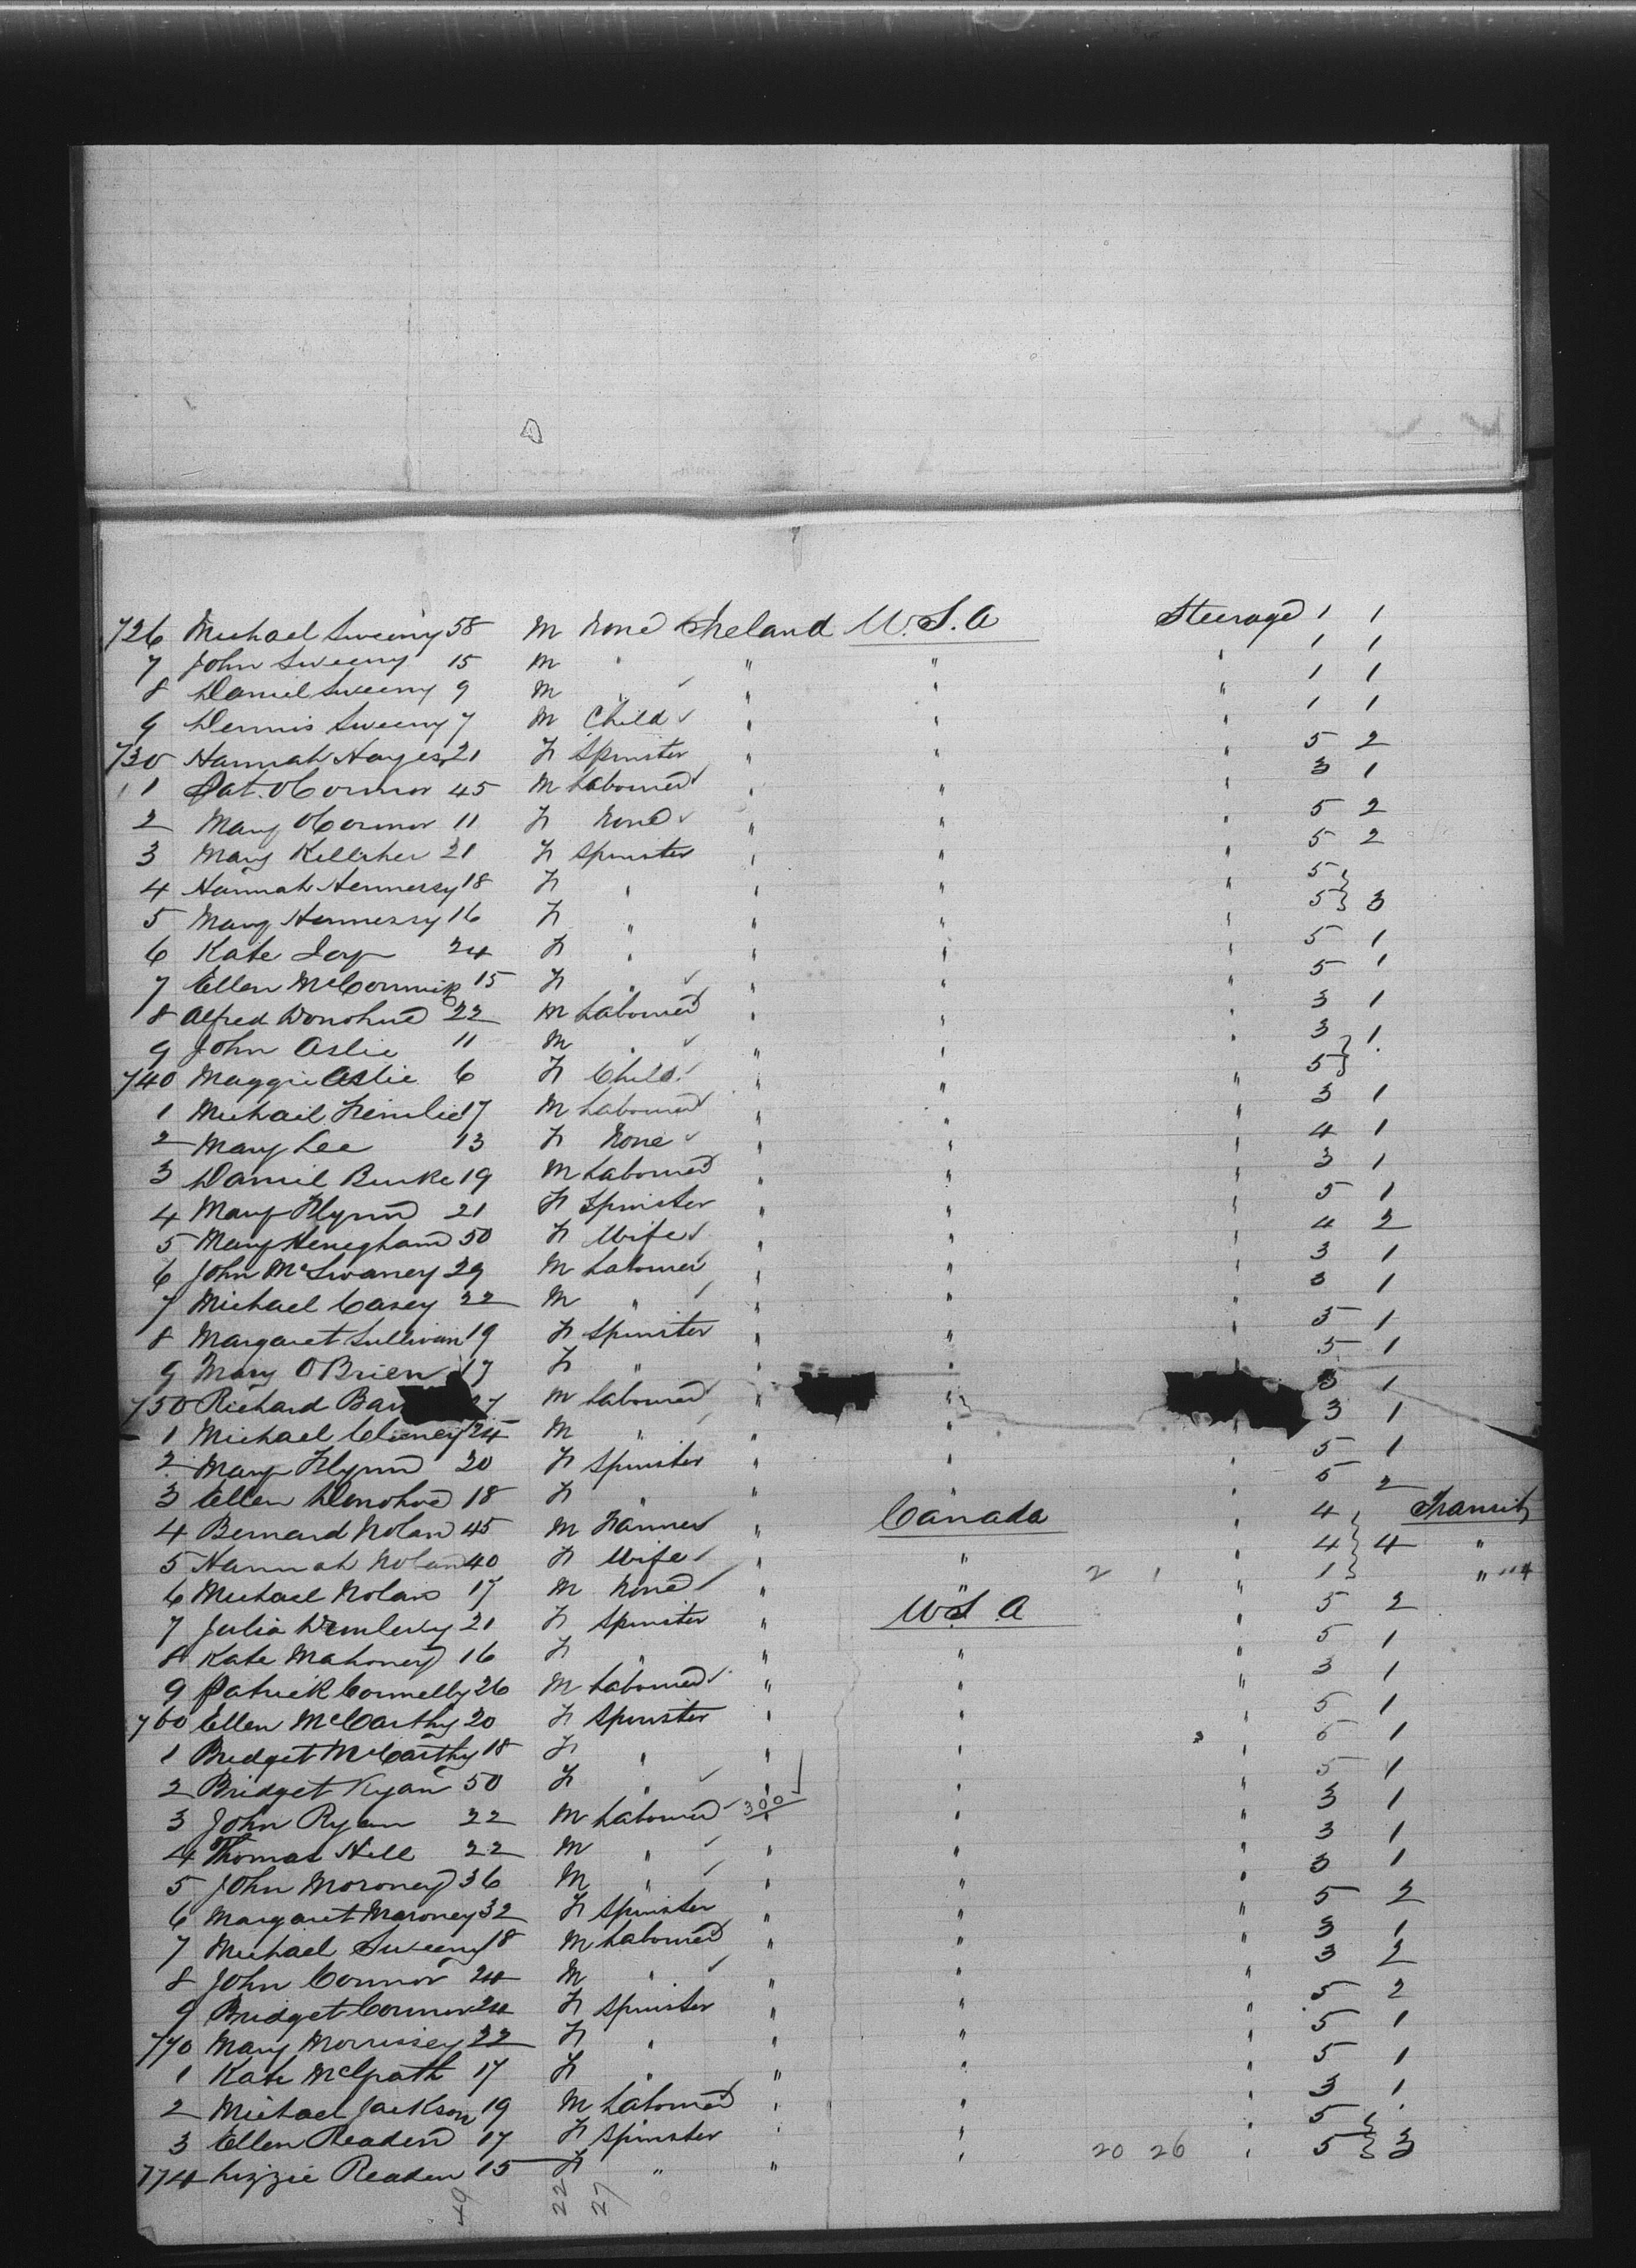 726 Michael Sweeny 58 M None Ireland U.S.A Steerage 1 1
7 John Sweeny 15 M " " " " 1 1
8 Daniel Sweeny 9 M " " " " 1 1
9 Dennis Sweeny 7 M Child " " " 1 1
730 Hannah Hayes 21 F Spinster " " " 5 2
1 Pat. OConnor 45 M Labourer " " " 3 1
2 Mary OConnor 11 F None " " " 5 2
3 Mary Kelliher 21 F Spinster " " " 5 2
4 Hannah Hennessy 18 F " " " " 5
5 Mary Hennessy 16 F " " " " 5 3
6 Kate Joy 24 F " " " " 5 1
7 Ellen McCormick 15 F " " " " 5 1
8 Alfred Donohue 22 M Labourer " " " 3 1
9 John Aslie 11 M " " " " 3 1
740 Maggie Aslie 6 F Child " " " 5
1 Michail 17 M Labourer " " " 3 1
2 Mary Lee 13 F None " " " 4 1
3 Daniel Burke 19 M Labourer " " " 3 1
4 Mary Flynn 21 F Spinster " " " 5 1
5 Mary Heneghan 50 F Wife " " " 4 2
6 John McSwaney 29 M Labourer " " " 3 1
7 Michael Casey 22 M " " " " 3 1
8 Margaret Sullivan 19 F Spinster " " " 5 1
9 Mary O'Brien 17 F " " " " 5 1
750 Richard Bar 27 M Labourer " " 3 1
1 Michael 24 M " " " " 3 1
2 Mary Flynn 20 F Spinster " " " 5 1
3 Ellen Donohoe 18 F " " " " 5 2
4 Bernard Nolan 45 M Farmer " Canada " 4 Transit
5 Hannah Nolan 40 F Wife " " " 4 4 "
6 Michael Nolan 17 M None " " 2 1 " 1 "
7 Julia 21 F Spinster " U.S.A " 5 2
8 Kate Mahoney 16 F " " " " 5 1
9 Patrick Connelly 26 M Labourer " " " 3 1
760 Ellen McCarthy 20 F Spinster " " " 5 1
1 Bridget McCarthy 18 F " " " " 5 1
2 Bridget Ryan 50 F " " " " 5 1
3 John Ryan 22 M Labourer 300 " " 3 1
4 Thomas Hill 22 M " " " " 3 1
5 John Moroney 36 M " " " " 3 1
6 Margaret Maroney 32 F Spinster " " " 5 2
7 Michael Sweeny 18 M Labourer " " " 3 1
8 John Connor 24 M " " " " 3 2
9 Bridget Connor 24 F Spinster " " " 5 2
770 Mary Morrissey 22 F " " " " 5 1
1 Kate McGrath 17 F " " " " 5 1
2 Michael Jackson 19 M Labourer " " " 3 1
3 Ellen Readen 17 F Spinster " " " 5
774 Lizzie Readen 15 F " " " 20 26 " 5 3
49 22 27